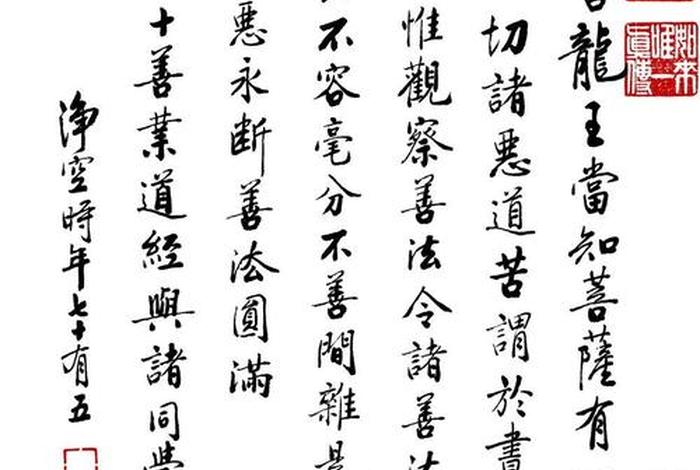 如来唯一眞傳
龍王當知菩薩有
切諸惡道苦謂於晝
惟觀察善法令諸善法
不容毫分不善間雜是
惡永斷善法圓滿
十善業道經與諸同學
淨空時年七十有五